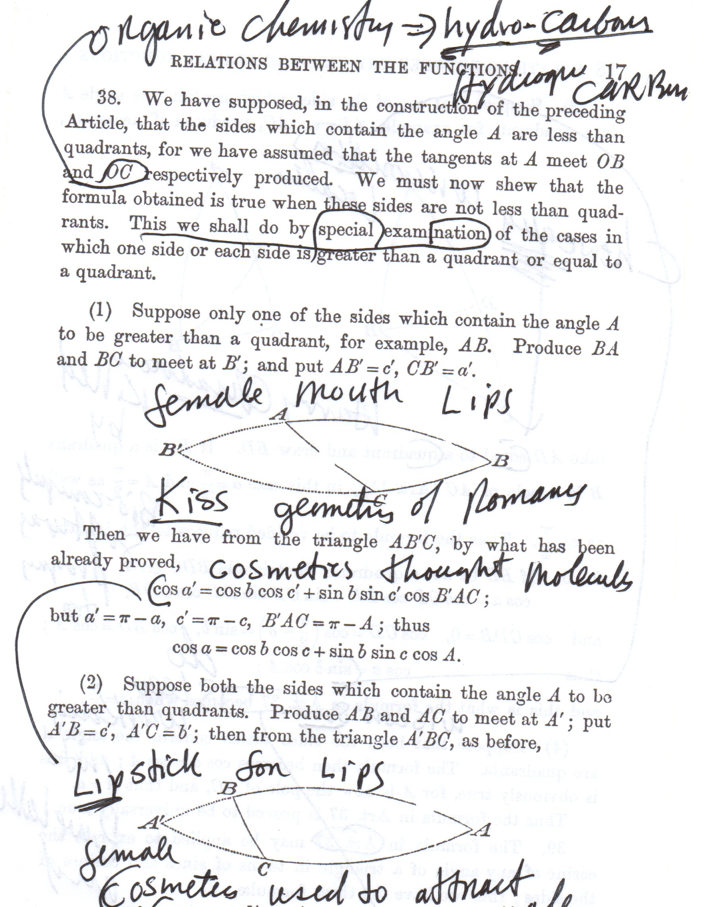 organic chemistry ⇒ hydro-carbons
RELATIONS BETWEEN THE FUNCTIONS. 17
Hydrogne CARBUN
38. We have supposed, in the construction of the preceding
Article, that the sides which contain the angle A are less than
quadrants, for we have assumed that the tangents at A meet OB
and OC respectively produced. We must now shew that the
formula obtained is true when these sides are not less than quad-
rants. This we shall do by special examination of the cases in
which one side or each side is greater than a quadrant or equal to
a quadrant.
(1) Suppose only one of the sides which contain the angle A
to be greater than a quadrant, for example, AB. Produce BA
and BC to meet at B′; and put AB′ = c′, CB′ = a′.
female mouth Lips
A
B′
B
C
Kiss geometris of Romans
Then we have from the triangle AB′C, by what has been
already proved,
cosmetics thought molecules
cos a′ = cos b cos c′ + sin b sin c′ cos B′AC ;
but a′ = π − a, c′ = π − c, B′AC = π − A ; thus
cos a = cos b cos c + sin b sin c cos A.
(2) Suppose both the sides which contain the angle A to be
greater than quadrants. Produce AB and AC to meet at A′ ; put
A′B = c′, A′C = b′ ; then from the triangle A′BC, as before,
Lipstick for Lips
B
A′
A
C
female
Cosmetics used to attract